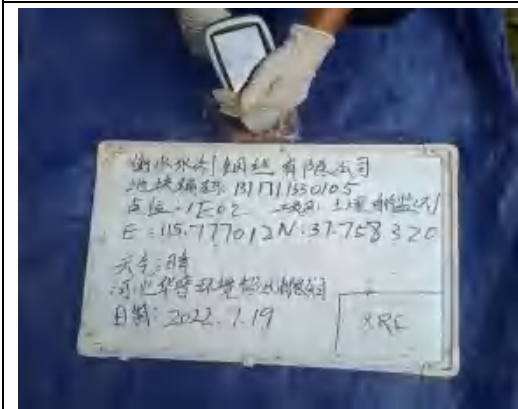 衡水永创钢丝有限公司
地块编码:1311711330105
点位:1E02 项目:土壤自行监测
E:115.777012 N:37.758320
天气:晴
河北华睿环境检测有限公司
日期:2022.7.19
XRF